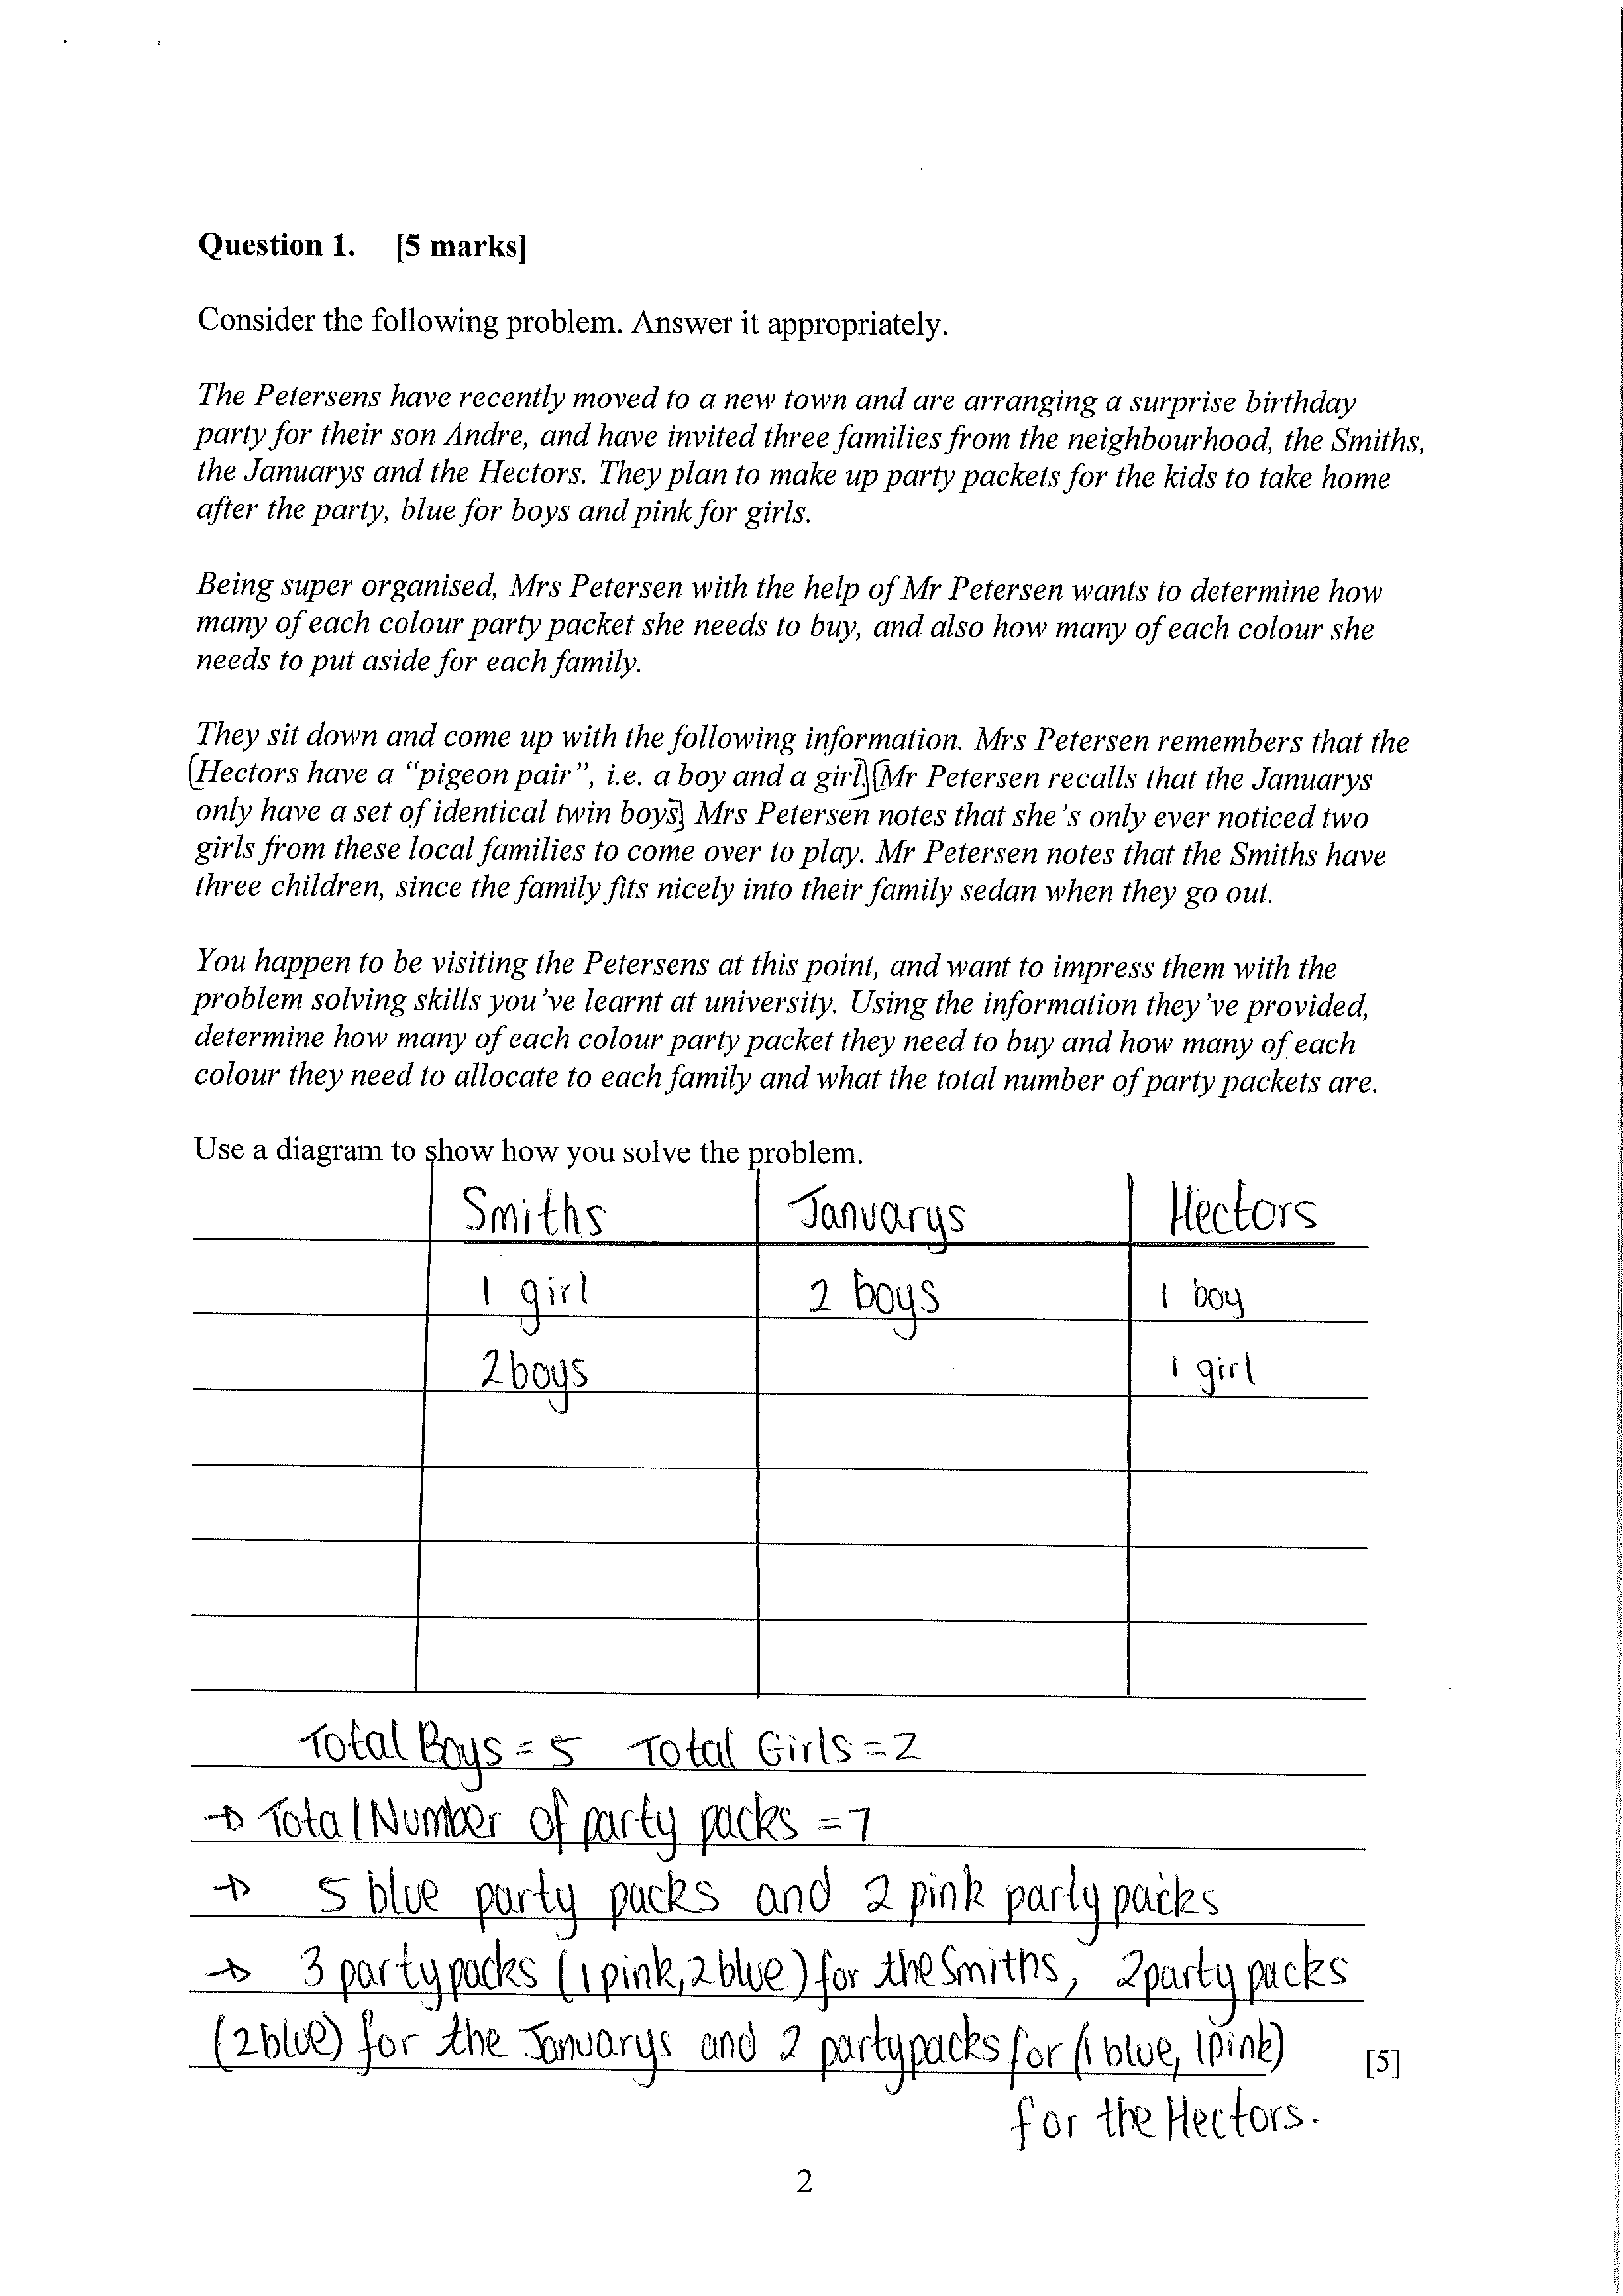 Question 1. [5 marks]
Consider the following problem. Answer it appropriately.
The Petersens have recently moved to a new town and are arranging a surprise birthday
party for their son Andre, and have invited three families from the neighbourhood, the Smiths,
the Januarys and the Hectors. They plan to make up party packets for the kids to take home
after the party, blue for boys and pink for girls.
Being super organised, Mrs Petersen with the help of Mr Petersen wants to determine how
many of each colour party packet she needs to buy, and also how many of each colour she
needs to put aside for each family.
They sit down and come up with the following information. Mrs Petersen remembers that the
[Hectors have a “pigeon pair”, i.e. a boy and a girl.] [Mr Petersen recalls that the Januarys
only have a set of identical twin boys] Mrs Petersen notes that she's only ever noticed two
girls from these local families to come over to play. Mr Petersen notes that the Smiths have
three children, since the family fits nicely into their family sedan when they go out.
You happen to be visiting the Petersens at this point, and want to impress them with the
problem solving skills you've learnt at university. Using the information they've provided,
determine how many of each colour party packet they need to buy and how many of each
colour they need to allocate to each family and what the total number of party packets are.
Use a diagram to show how you solve the problem.
Smiths Januarys Hectors
1 girl 2 boys 1 boy
2 boys 1 girl
Total Boys = 5 Total Girls = 2
→ Total Number of party packs = 7
→ 5 blue party packs and 2 pink party packs
→ 3 party packs (1 pink, 2 blue) for the Smiths, 2 party packs
(2 blue) for the Januarys and 2 party packs for (1 blue, 1 pink)
[5]
for the Hectors.
2